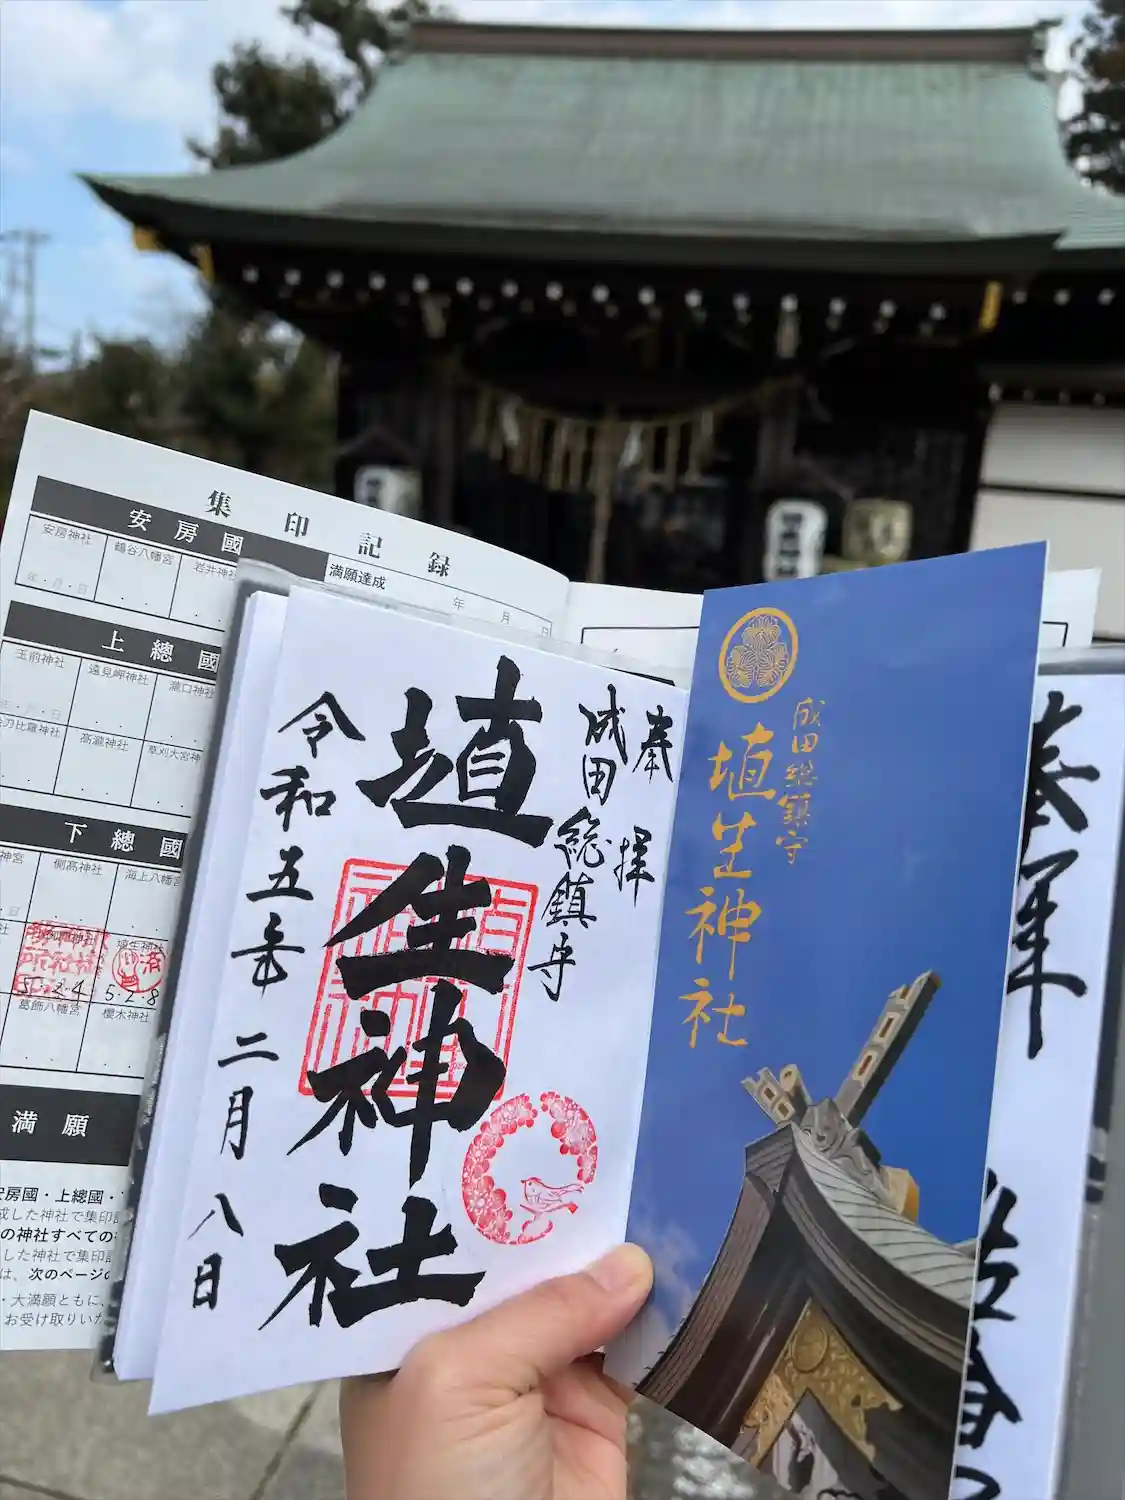 集印記録
安房國
安房神社
鶴谷八幡宮
岩井神
満願達成
年 月 日
上總國
玉前神社
遠見岬神社
瀧口神社
刀比羅神社
高瀧神社
草刈大宮神
下總國
神宮
側高神社
海上八幡宮
埴生神社
済
5.2.4
5.2.8
葛飾八幡宮
櫻木神社
満願
安房國・上總國・
成した神社で集印
の神社すべての
した神社で集印
は、次のページの
・大満願ともに、
お受け取りいた
奉拝
成田総鎮守
埴生神社
令和五年二月八日
成田総鎮守
埴生神社
奉拝